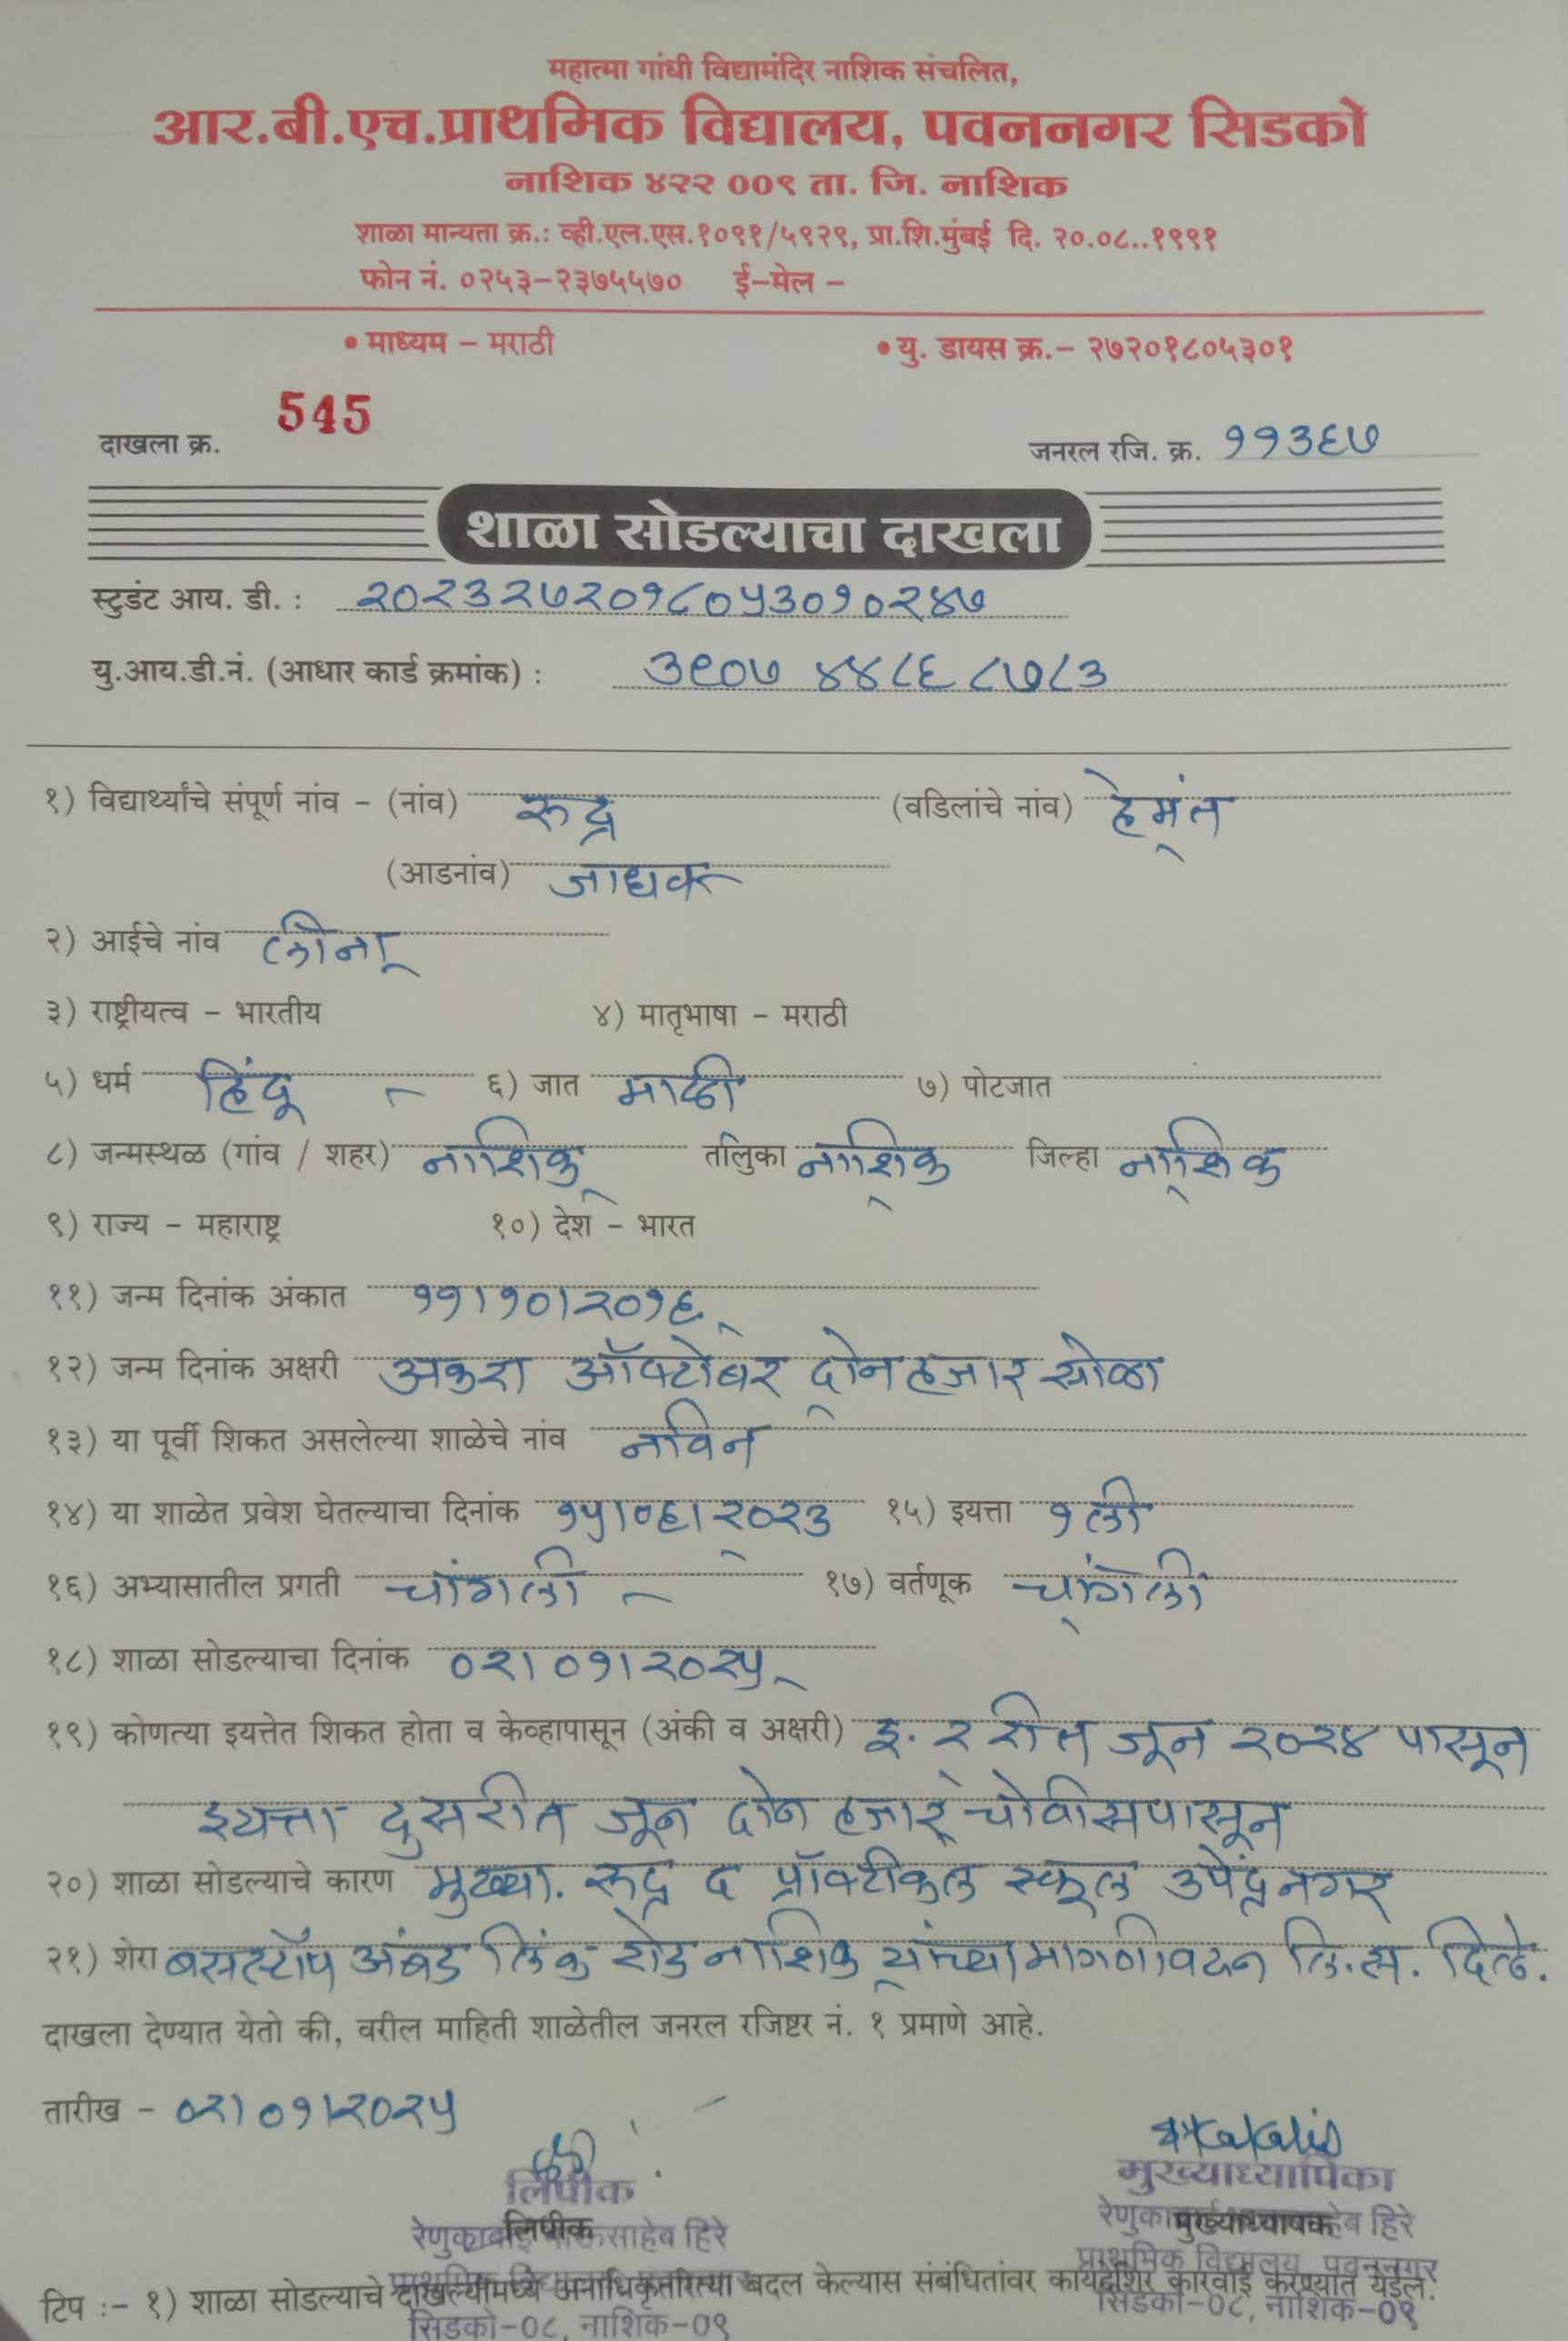 महात्मा गांधी विद्यामंदिर नाशिक संचलित,
आर.बी.एच.प्राथमिक विद्यालय, पवननगर सिडको
नाशिक ४२२ ००९ ता. जि. नाशिक
शाळा मान्यता क्र.: व्ही.एल.एस.१०९१/५९२९, प्रा.शि.मुंबई दि. २०.०८..१९९१
फोन नं. ०२५३-२३७५५७० ई-मेल -
• माध्यम - मराठी • यु. डायस क्र.- २७२०१८०५३०१
दाखला क्र. 545 जनरल रजि. क्र. ११३६७
शाळा सोडल्याचा दाखला
स्टुडंट आय. डी. : २०२३२७२०१८०५३०१०२४७
यु.आय.डी.नं. (आधार कार्ड क्रमांक) : ३९०७ ४४८६ ८७८३
१) विद्यार्थ्यांचे संपूर्ण नांव - (नांव) रुद्र (वडिलांचे नांव) हेमंत
(आडनांव) जाधव
२) आईचे नांव लीना
३) राष्ट्रीयत्व - भारतीय ४) मातृभाषा - मराठी
५) धर्म हिंदू ६) जात माळी ७) पोटजात
८) जन्मस्थळ (गांव / शहर) नाशिक तालुका नाशिक जिल्हा नाशिक
९) राज्य - महाराष्ट्र १०) देश - भारत
११) जन्म दिनांक अंकात ११।१०।२०१६
१२) जन्म दिनांक अक्षरी अकरा ऑक्टोबर दोन हजार सोळा
१३) या पूर्वी शिकत असलेल्या शाळेचे नांव नविन
१४) या शाळेत प्रवेश घेतल्याचा दिनांक १५।०६।२०२३ १५) इयत्ता १ ली
१६) अभ्यासातील प्रगती चांगली १७) वर्तणूक चांगली
१८) शाळा सोडल्याचा दिनांक ०२।०१।२०२५
१९) कोणत्या इयत्तेत शिकत होता व केव्हापासून (अंकी व अक्षरी) इ. २ रीत जून २०२४ पासून
इयत्ता दुसरीत जून दोन हजार चोवीसपासून
२०) शाळा सोडल्याचे कारण मुख्या. रुद्र द प्रॉक्टीकल स्कूल उपेंद्रनगर
२१) शेरा बसस्टॉप अंबड लिंक रोड नाशिक यांच्या मागणीवरुन लि.स. दिले.
दाखला देण्यात येतो की, वरील माहिती शाळेतील जनरल रजिष्टर नं. १ प्रमाणे आहे.
तारीख - ०२।०१।२०२५
लिपीक मुख्याध्यापिका
लिपीक साहेब हिरे मुख्याध्यापक हिरे
प्राथमिक विद्यालय, पवननगर
टिप :- १) शाळा सोडल्याचे दाखल्यामध्ये अनाधिकृतरित्या बदल केल्यास संबंधितांवर कायदेशिर कारवाई करण्यात येईल.
सिडको-०८, नाशिक-०९ सिडको-०८, नाशिक-०९